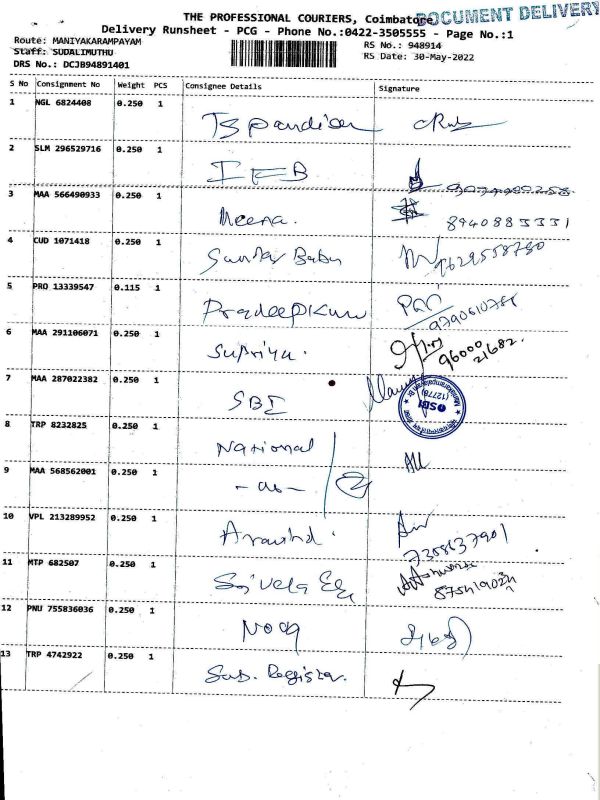 THE PROFESSIONAL COURIERS, Coimbatore
DOCUMENT DELIVERY
Delivery Runsheet - PCG - Phone No.:0422-3505555 - Page No.:1
Route: MANIYAKARAMPAYAM
RS No.: 948914
Staff: SUDALIMUTHU
RS Date: 30-May-2022
DRS No.: DCJB94891401
S No Consignment No Weight PCS Consignee Details Signature
1 NGL 6824408 0.250 1
2 SLM 296529716 0.250 1 IFB
3 MAA 566490933 0.250 1 Meena. 8940883331
4 CUD 1071418 0.250 1 Babu
5 PRO 13339547 0.115 1 Pradeepkum
6 MAA 291106071 0.250 1 Supriya. 96000 21682.
7 MAA 287022382 0.250 1 SBI
SBI
(12778)
8 TRP 8232825 0.250 1 National
9 MAA 568562001 0.250 1 - do -
10 VPL 213289952 0.250 1 Aravind. 7358637901
11 MTP 682507 0.250 1
12 PNU 755836036 0.250 1
13 TRP 4742922 0.250 1 Sub. Register.